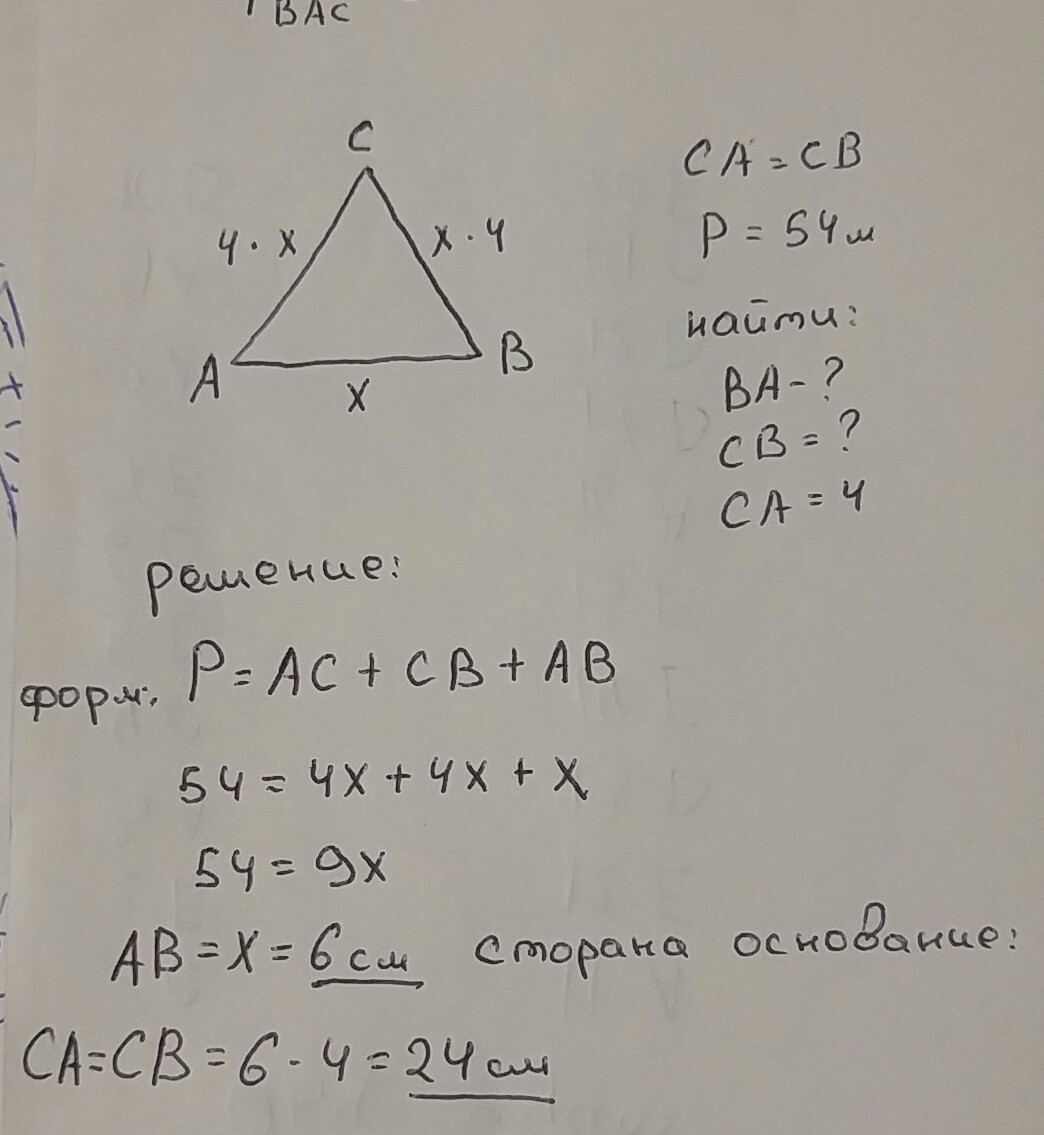 BAC
C
CA = CB
4 · x
x · 4
P = 54 м
найти:
A
B
x
BA - ?
CB = ?
CA = 4
решение:
форм. P = AC + CB + AB
54 = 4x + 4x + x
54 = 9x
AB = x = 6 см сторана основание:
CA = CB = 6 · 4 = 24 см